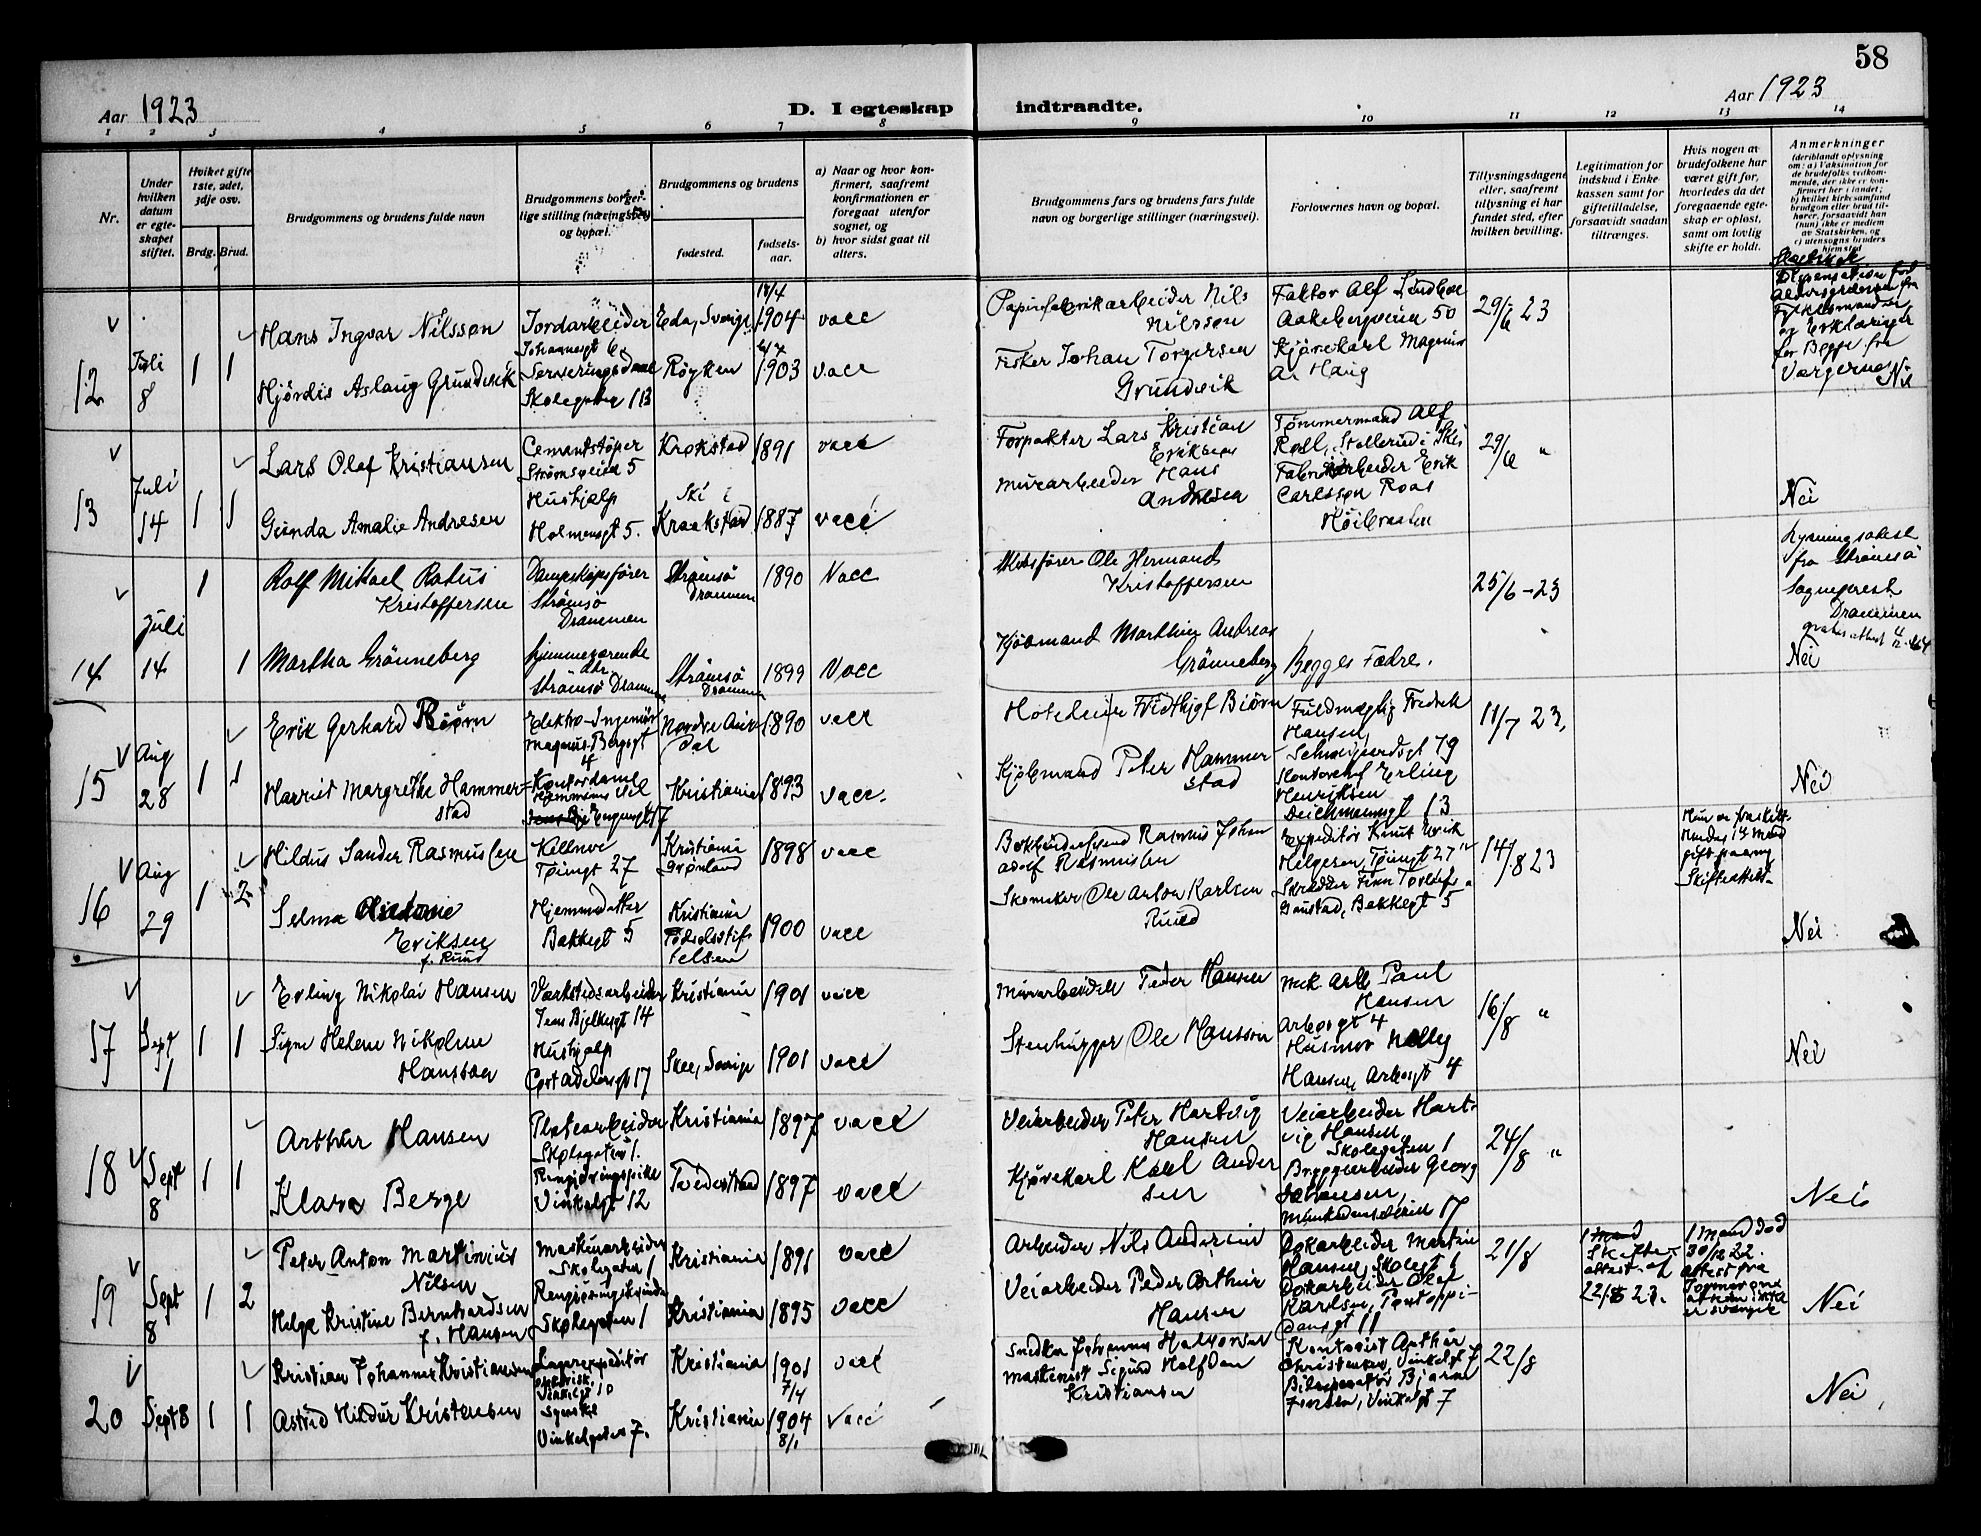 58
Aar 1923
D. I egteskap indtraadte.
Aar 1923
1 2 3 4 5 6 7 8 9 10 11 12 13 14
Nr.
Under hvilken datum er egteskapet stiftet.
Hvilket gifte 1ste, 2det, 3dje osv.
Brdg. Brud.
Brudgommens og brudens fulde navn
Brudgommens borgerlige stilling (næringsvei) og bopæl.
Brudgommens og brudens
fødested.
fødsels-aar.
a) Naar og hvor konfirmert, saafremt konfirmationen er foregaat utenfor sognet, og
b) hvor sidst gaat til alters.
Brudgommens fars og brudens fars fulde navn og borgerlige stillinger (næringsvei).
Forlovernes navn og bopæl.
Tillysningsdagene eller, saafremt tillysning ei har fundet sted, efter hvilken bevilling.
Legitimation for indskud i Enkekassen samt for giftetilladelse, forsaavidt saadan tiltrænges.
Hvis nogen av brudefolkene har været gift før, hvorledes da det foregaaende egteskap er opløst, samt om lovlig skifte er holdt.
Anmerkninger
12 Juli 8 1 1
Hans Ingvar Nilsson
Jordarbeider
Johannesgt 6
Eda, Sverige
18/4 1904
vacc
Papirfabrikarbeider Nils Nilsson
Faktor Alf Lindboe
Aakebergveien 50
29/6 23
Hjördis Aslaug Grundvik
Serveringsdame
Skolegaten 13
Røyken
1903
vacc
Fisker Johan Torgersen Grundvik
Kjørekarl Magnus
Haug
for Begge fra
Værgerne Nei
13 Juli 14 1 1
Lars Olaf Kristiansen
Cementstøper
Strømsveien 5
Krokstad
1891
vacc
Forpakter Lars Kristian Eriksen
Tømmermand Alf
29/6 "
Gunda Amalie Andresen
Hushjælp
Holmensgt 5.
Ski i
Kraakstad
1887
vacc
Murarbeider Hans Andresen
Fabrikarbeider Erik
Carlsson Roas
Høibraaten
Nei
14 Juli 14 1 1
Rolf Mikael Ratus
Kristoffersen
Dampskipsfører
Strømsø
Drammen
Strømsö
Drammen
1890
Vacc
Ole Hermand
Kristoffersen
25/6-23
Lysningsattest
fra Strømsö
Sogneprest
Drammen
Martha Grönneberg
hjemmeværende
dtr
Strömsö Drammen
Strömsö
Drammen
1899
Vacc
Kjöbmand Marthin Andreas
Grönneberg
Begges Fædre.
Nei
15 Aug 28 1 1
Erik Gerhard Biørn
Elektro-Ingeniør
Magnus Bergsgt
4
Nordre Aurdal
1890
vacc
Hoteleier Fridthjof Biørn
Fuldmægtig Fredrik
Hansen,
Schweigaardsgt 79
11/7 23.
Harriet Margrethe Hammerstad
Kontordame
Kristiania
1893
vacc.
Kjøbmand Peter Hammerstad
Kontorchef Erling
Henriksen
Deichmannsgt 13
Nei
16 Aug 29 1 2
Hildus Sander Rasmussen
Kellner
Tøiengt 27
Kristiania
Grønland
1898
vacc
Rasmus Johan
Adolf Rasmussen
Expeditør Knut Erik
Helgesen, Tøiengt 27
14/8 23
Selma
Eriksen
f. Ruud
Hjemmedatter
Bakkegt 5
Kristiania
Fødselsstiftelsen
1900
vacc
Skomaker Ole Anton Karlsen
Ruud
Skrædder Finn Torleif
Gaustad, Bakkegt 5
Nei
17 Sept 1 1 1
Erling Nikolai Hansen
Værkstedsarbeider
Jens Bjelkesgt 14
Kristiania
1901
vacc
Murarbeider Peder Hansen
Mek Arb Paul
Hansen
Arbosgt 4
16/8 "
Signe Helene Nikoline
Hansson
Hushjælp
Cort Adelersgt 17
Skee, Sverige
1901
vacc
Stenhugger Ole Hansson
Husmor Nelly
Hansen, Arbosgt 4
Nei
18 Sept 8 1 1
Arthur Hansen
Platearbeider
Skolegaten 1.
Kristiania
1897
vacc
Veiarbeider Peter Hartvig
Hansen
Veiarbeider Hartvig Hansen,
Skolegaten 1
24/8 "
Klara Berge
Rengjøringspike
Vinkelgt 12
Tvedestrand
1897
vacc
Kjørekarl Karl Andersen
Bryggearbeider Georg
Johansen,
Munkedamsveien 17
Nei
19 Sept 8 1 2
Peter Anton Martinius
Nilsen
Maskinarbeider
Skolegaten 1
Kristiania
1891
vacc
Arbeider Nils Andersen
Dokarbeider Martin
Hansen, Skolegt 1
21/8
Skifteattest af
22/8 23.
1 Mand død
30/12 22.
attest fra
Jormor om
at hun ikke
er svanger
Helga Kristine Bernhardsen
f. Hansen
Rengjøringskvinde
Skolegaten 1
Kristiania
1895
vacc
Veiarbeider Peder Arthur
Hansen
Dokarbeider Olaf
Karlsen, Pontoppidansgt 11
Nei
20 Sept 8 1 1
Kristian Johannes Kristiansen
Lagerexpeditør
Kristiania
1901
7/4
vacc
Snedker Johannes Halvorsen
Kontorist Arthur
Christensen, Vinkelgt 7
22/8
Astrid Hildur Kristensen
Syerske
Vinkelgaten 7.
Kristiania
1904
8/1
vacc
Maskinist Sigurd Halfdan
Kristiansen
Bjarne
Vinkelgt 7
Nei